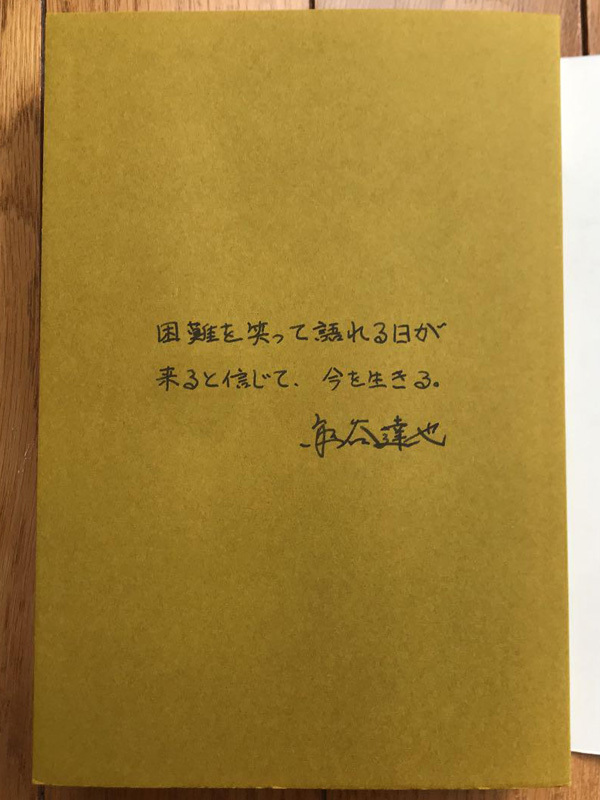 困難を笑って語れる日が
来ると信じて、今を生きる。
谷達也